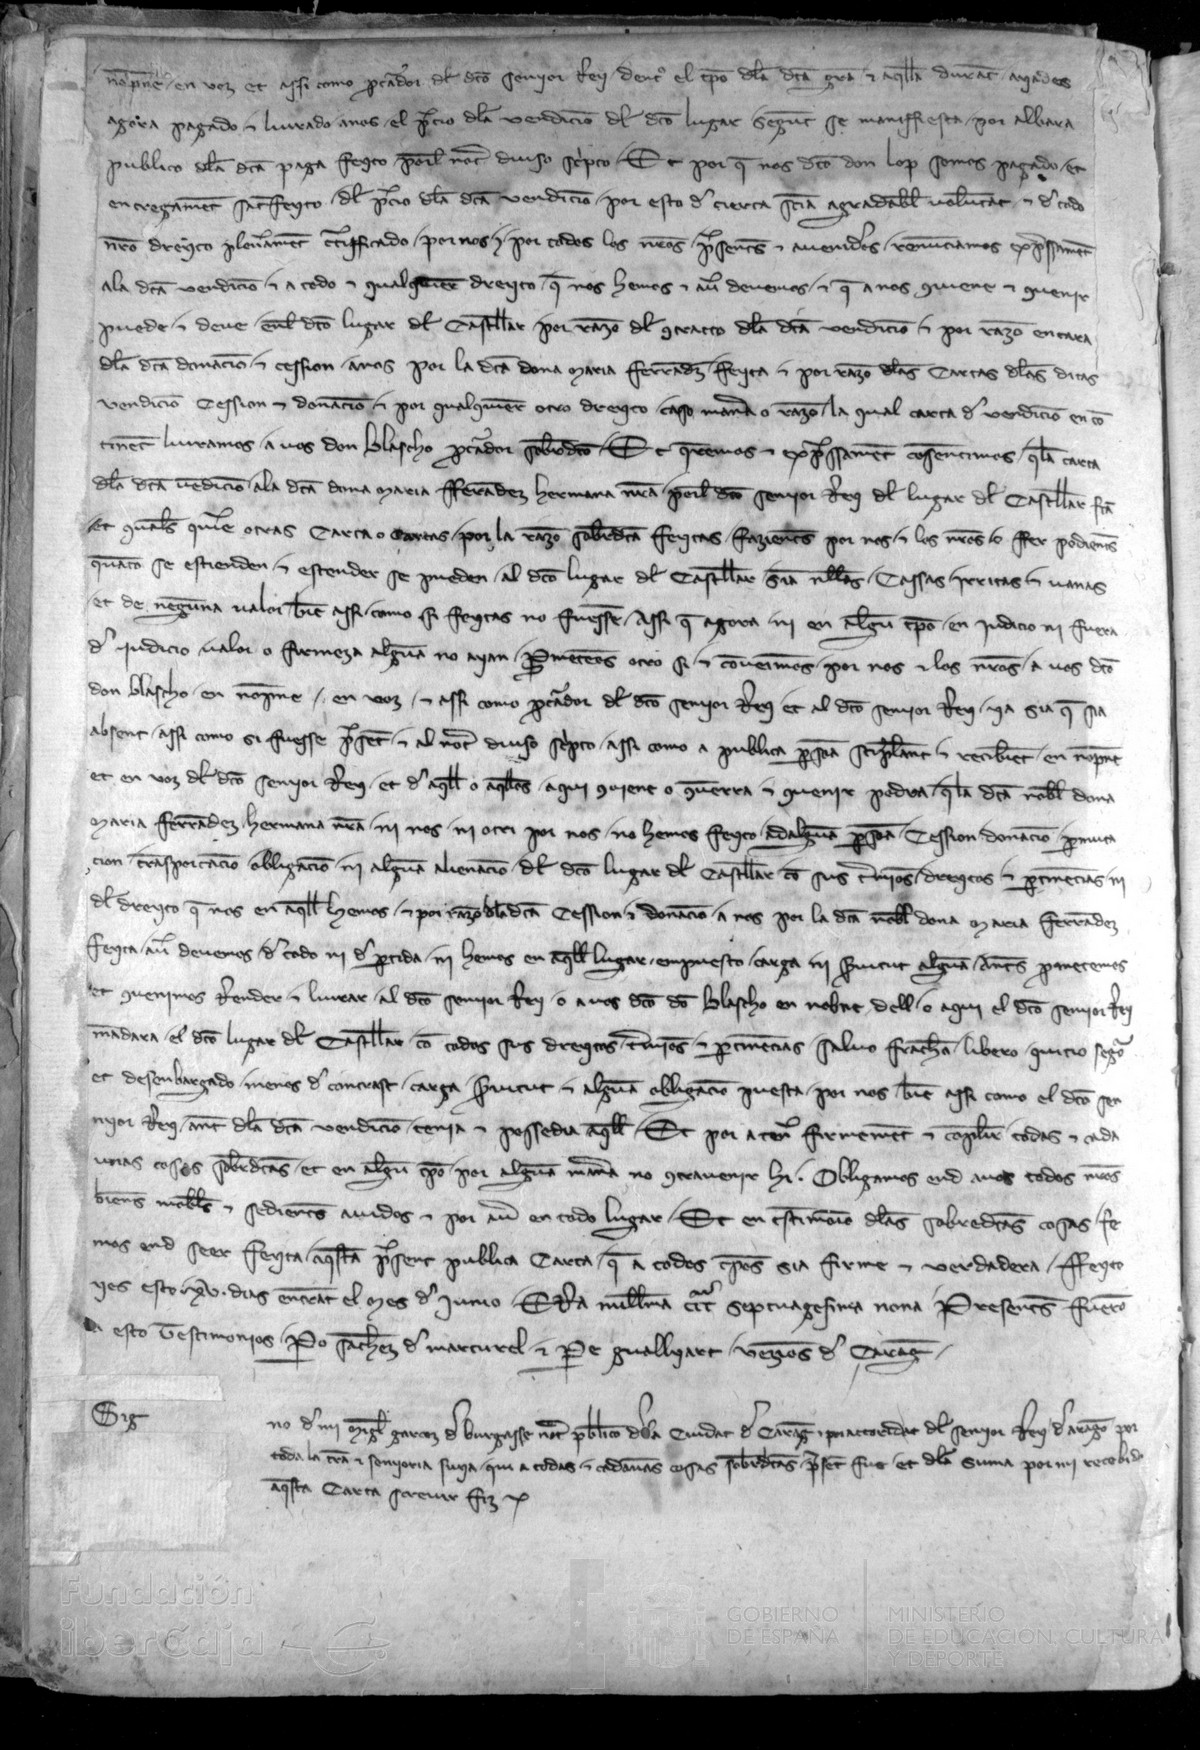 nopne en voz et assi como pcador dl dco senyor Rey dent el tpo dla dca gra τ aqlla durat ayades
agora pagado τ liurado a nos el pcio dla vendicio dl dco lugar segunt se maniffiesta por albara
publico dla dca paga feyto porl not diuso scpto Et por q nos dco don lop somos pagado et
entregament satisfeyto dl pcio dla dca vendicio por esto d cierta scia agradabl voluntat τ d todo
nro dreyto plenament certifficado por nos τ por todos los nros psents τ auenidos renunciamos expssament
a la dca vendicio τ a todo τ qualquiere dreyto q nos hemos τ au deuemos τ q a nos 9uiene τ 9uenir
puede τ deue enl dco lugar dl Castllar por razo dl 9tracto dla dca vendicio τ por razo encara
dla dca donacio τ cession a nos por la dca dona Maria fferradz feyta τ por razo dlas Cartas dlas ditas
vendicio Cession τ donacio τ por qualquiere otro dreyto caso mana o razo la qual carta d vendicio en co
tinet liuramos a vos don Blascho pcador sobrdco Et qremos τ expssament cosentimos qla carta
dla dca vedicio ala dca dona Maria fferradez hermana nra porl dco senyor Rey dl lugar dl Castllar fca
et quals quiere otras Carta o Cartas por la razo sobrdca feytas fazients por nos τ los nros o ffer podients
quato se estienden τ estender se pueden al dco lugar dl Castllar sia nllas Cassas irritas τ vanas
et de neguna valor bie assi como si feytas no fuesse Assi q agora ni en algu tpo en judicio ni fuera
d judicio valor o firmeza algua no ayan Pmetemos otro si τ couenimos por nos τ los nros a vos dco
don blascho en nopne en voz τ assi como pcador dl dco senyor Rey et al dco senyor Rey ya sia q sia
absent assi como si fuesse psent τ al not diuso scpto assi como a publica psona stipulant τ recibient en nopne
et en voz dl dco senyor Rey et d aqll o aqllos a qui 9uiene o 9uerra τ 9uenir podra qla dca nobl dona
Maria fferradez hermana nra ni nos ni otri por nos no hemos feyto ad algua psona Cession donacio pmuta
cion trasportacio obligacio ni algua alienacio dl dco lugar dl Castllar co sus tmios dreytos τ ptinecias ni
dl dreyto q nos en aqll hemos τ por razo dla dca Cession τ donacio a nos por la dca nobl dona Maria fferradez
feyta au deuemos d todo ni d ptida ni hemos en aqll lugar empuesto carga ni Seruitut algua Ants pmetemos
et 9uenimos Render τ liurar al dco senyor Rey o a vos dco do Blascho en nobne dell o a qui el dco senyor Rey
madara el dco lugar dl Castllar co todos sus dreytos tmios τ ptinecias saluo francho libero quitio segro
et desenbargado menos d contrast carga Seruitut τ algua obligacio puesta por nos bie assi como el dco sen
nyor Rey ant dla dca vendicio tenia τ possedia aqll Et por a tener firmement τ complir todas τ cada
unas cosas sobrdcas et en algu tpo por algua mana no 9trauenir hi. Obligamos end a vos todos nros
biens mobls τ sedients auidos τ por au en todo lugar Et en testimoio dlas sobredcas cosas fe
mos end seer feyta aqsta psent publica Carta q a todos tpos sia firme τ verdadera ffeyto
yes esto .xxv. dias entrat el Mes d Junio ERa millma CCC septuagesima nona Presents fuero
a esto Testimonios Po Sanchez d marturel τ Pe guallyart vezinos d Carag
Sig
no d mi Migl garcez d burgasse not pblico dla Ciudat d Carag τ por actoridat dl senyor Rey d arago por
toda la tra τ senyoria suya qui a todas τ cadaunas cosas sobrdcas psent fue et dla suma por mi recebida
aqsta Carta screuir fiz
Fundación
iberCaja
GOBIERNO
DE ESPAÑA
MINISTERIO
DE EDUCACIÓN, CULTURA
Y DEPORTE